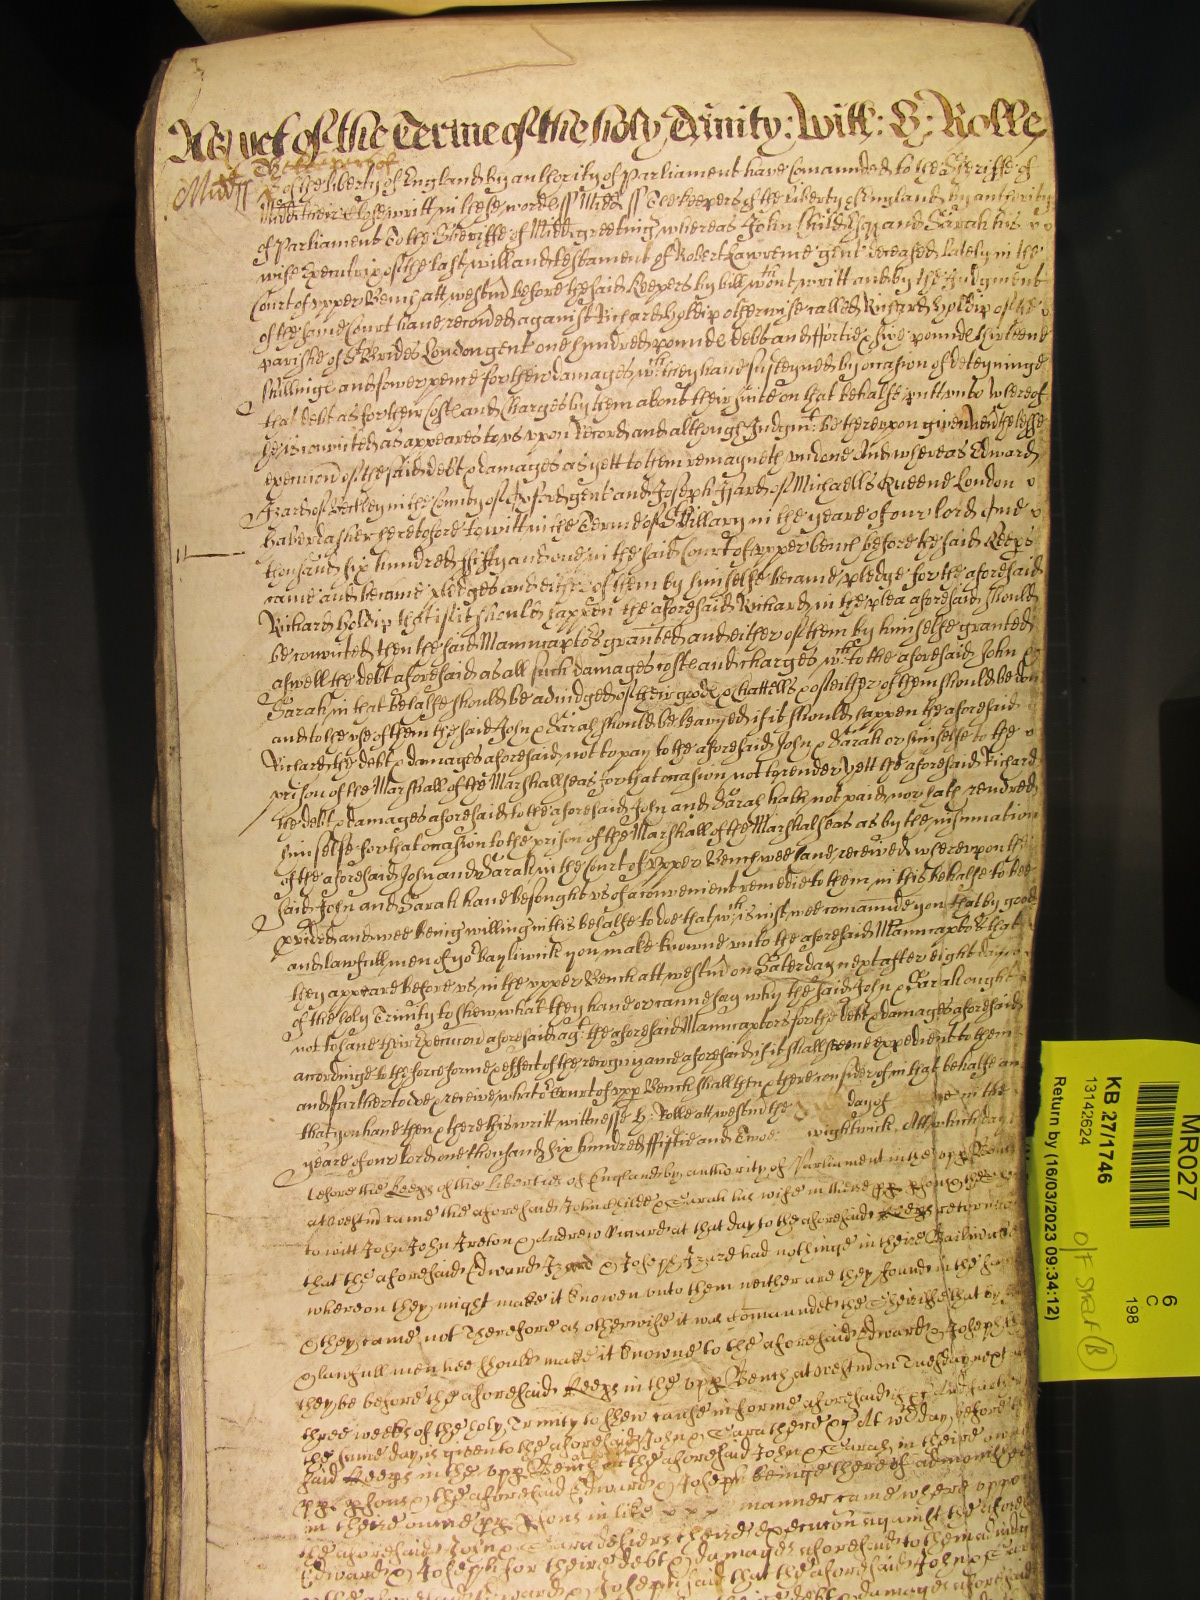 As yet of the Terme of the holy Trinity: Witt: H: Rolle
Midd ss The keepers of
of the liberty of England by authority of Parliament have comaunded to the Sheriffe of
Midd their Close writt in these words ss Midd ss The keepers of the liberty of England by authority
of Parliament To the Sheriffe of Midd greeting whereas John Child Esqr and Sarah his
wife Executrix of the last will and testament of Robert Lawrence gent deceased lately in the
Court of upper Bench att westm before the said Keepers by bill wthout writt and by the Judgment
of the same Court have recovered against Richard holdip otherwise called Richard holdip of the
parishe of St Brides London gent one hundred pounds debt and ffortie five pounds thirteene
shillings and fower pence for their damages wch they have susteyned by occasion of deteyninge
that debt as for their Costs and Charges by them about their suite on that behalfe putt unto whereof
he is convicted as appeares to us upon Record and although Judgmt be thereupon given nevertheless
execucon of the said debt & damages as yett to them remayneth undone And whereas Edward
Izard of Beckley in the County of Oxford gent and Joseph Izard of Michaells Queene London
haberdasher heretofore to witt in the Terme of St Hillary in the yeare of our lord One
thousand six hundred ffifty and one in the said Court of upper bench before the said Keeps
came and became pledges and either of them by himselfe became pledge for the aforesaid
Richard holdip that if it should happen the aforesaid Richard in the plea aforesaid should
be convicted then the said Mainucaptors granted and either of them by himselfe granted
aswell the debt aforesaid as all such damages costs and charges wch to the aforesaid John &
Sarah in that behalfe should be adiudged of their goods & chattells & of either of them should be don
and to the use of them the said John & Sarah should be leavyed if it should happen the aforesaid
Richard the debt & damages aforesaid not to pay to the aforesaid John & Sarah or himselfe to the
prison of the Marshall of the Marshallseas for that occasion not to render Yett the aforesaid Richard
the debt & damages aforesaid to the aforesaid John and Sarah hath not paid nor hath rendred
himselfe for that occasion to the prison of the Marshall of the Marshalseas as by the insinuation
of the aforesaid John and Sarah in the Court of upper Bench wee have received whereupon the
said John and Sarah have besought us of a convenient remedie to them in this behalfe to bee
provided and wee being willing in this behalfe to doe that wch is iust wee comaunde you that by good
and lawfull men of yor bayliwick you make knowne unto the aforesaid Mainucaptors that
they appeare before us in the upper Bench att westm on Saterday next after eight dayes
of the holy Trinity to shew what they have or canne say why the said John & Sarah ought
not to have their Execucon aforesaid agt the aforesaid Mainucaptors for the debt & damages aforesaid
accordinge to the force forme & effect of the recognizance aforesaid if it shall seeme expedient to them
and further to doe & receive what or Court of upp Bench shall then & there consider of in that behalfe and
that you have then & there this writt wittnesse H: Rolle att westm the day of in the
yeare of our lord one thousand six hundred ffiftie and Twoe: wightwick. Att which day
before the Keeps of the liberties of England by authority of Parliament in the upp Bench
at westm came the aforesaid John Childe & Sarah his wife in theire pp psons & the
to witt John John Ireton & Andrew Riccard at that day to the aforesaid Keeps returned
that the aforesaid Edward Izard & Joseph Izard had nothinge in theire Bailiwick
whereon they might make it knowen unto them neither are they found in the same
& they came not Therefore as otherwise it was comaunded the Sheriffe that by
& lawfull men hee should make it knowne to the aforesaid Edward & Joseph that
they be before the aforesaid Keeps in the upp Bench at westm on Tuesday next
three weeks of the holy Trinity to shew cause in forme aforesaid
the same day is given to the aforesaid John & Sarah there &c At wch day before the
said Keeps in the upp Bench the aforesaid John & Sarah in theire owne
pp psons & the aforesaid Edward & Joseph beinge thereof admonished
in theire owne pp psons in like manner came where uppon
the aforesaid John & Sarah desiers theire execucon against the aforesaid
Edward & Joseph for theire debt & damages aforesaid to them adiudged
Edward & Joseph said that the aforesaid John & Sarah
MR027
6
C
198
KB 27/1746
13142624
Return by (16/03/2023 09:34:12)